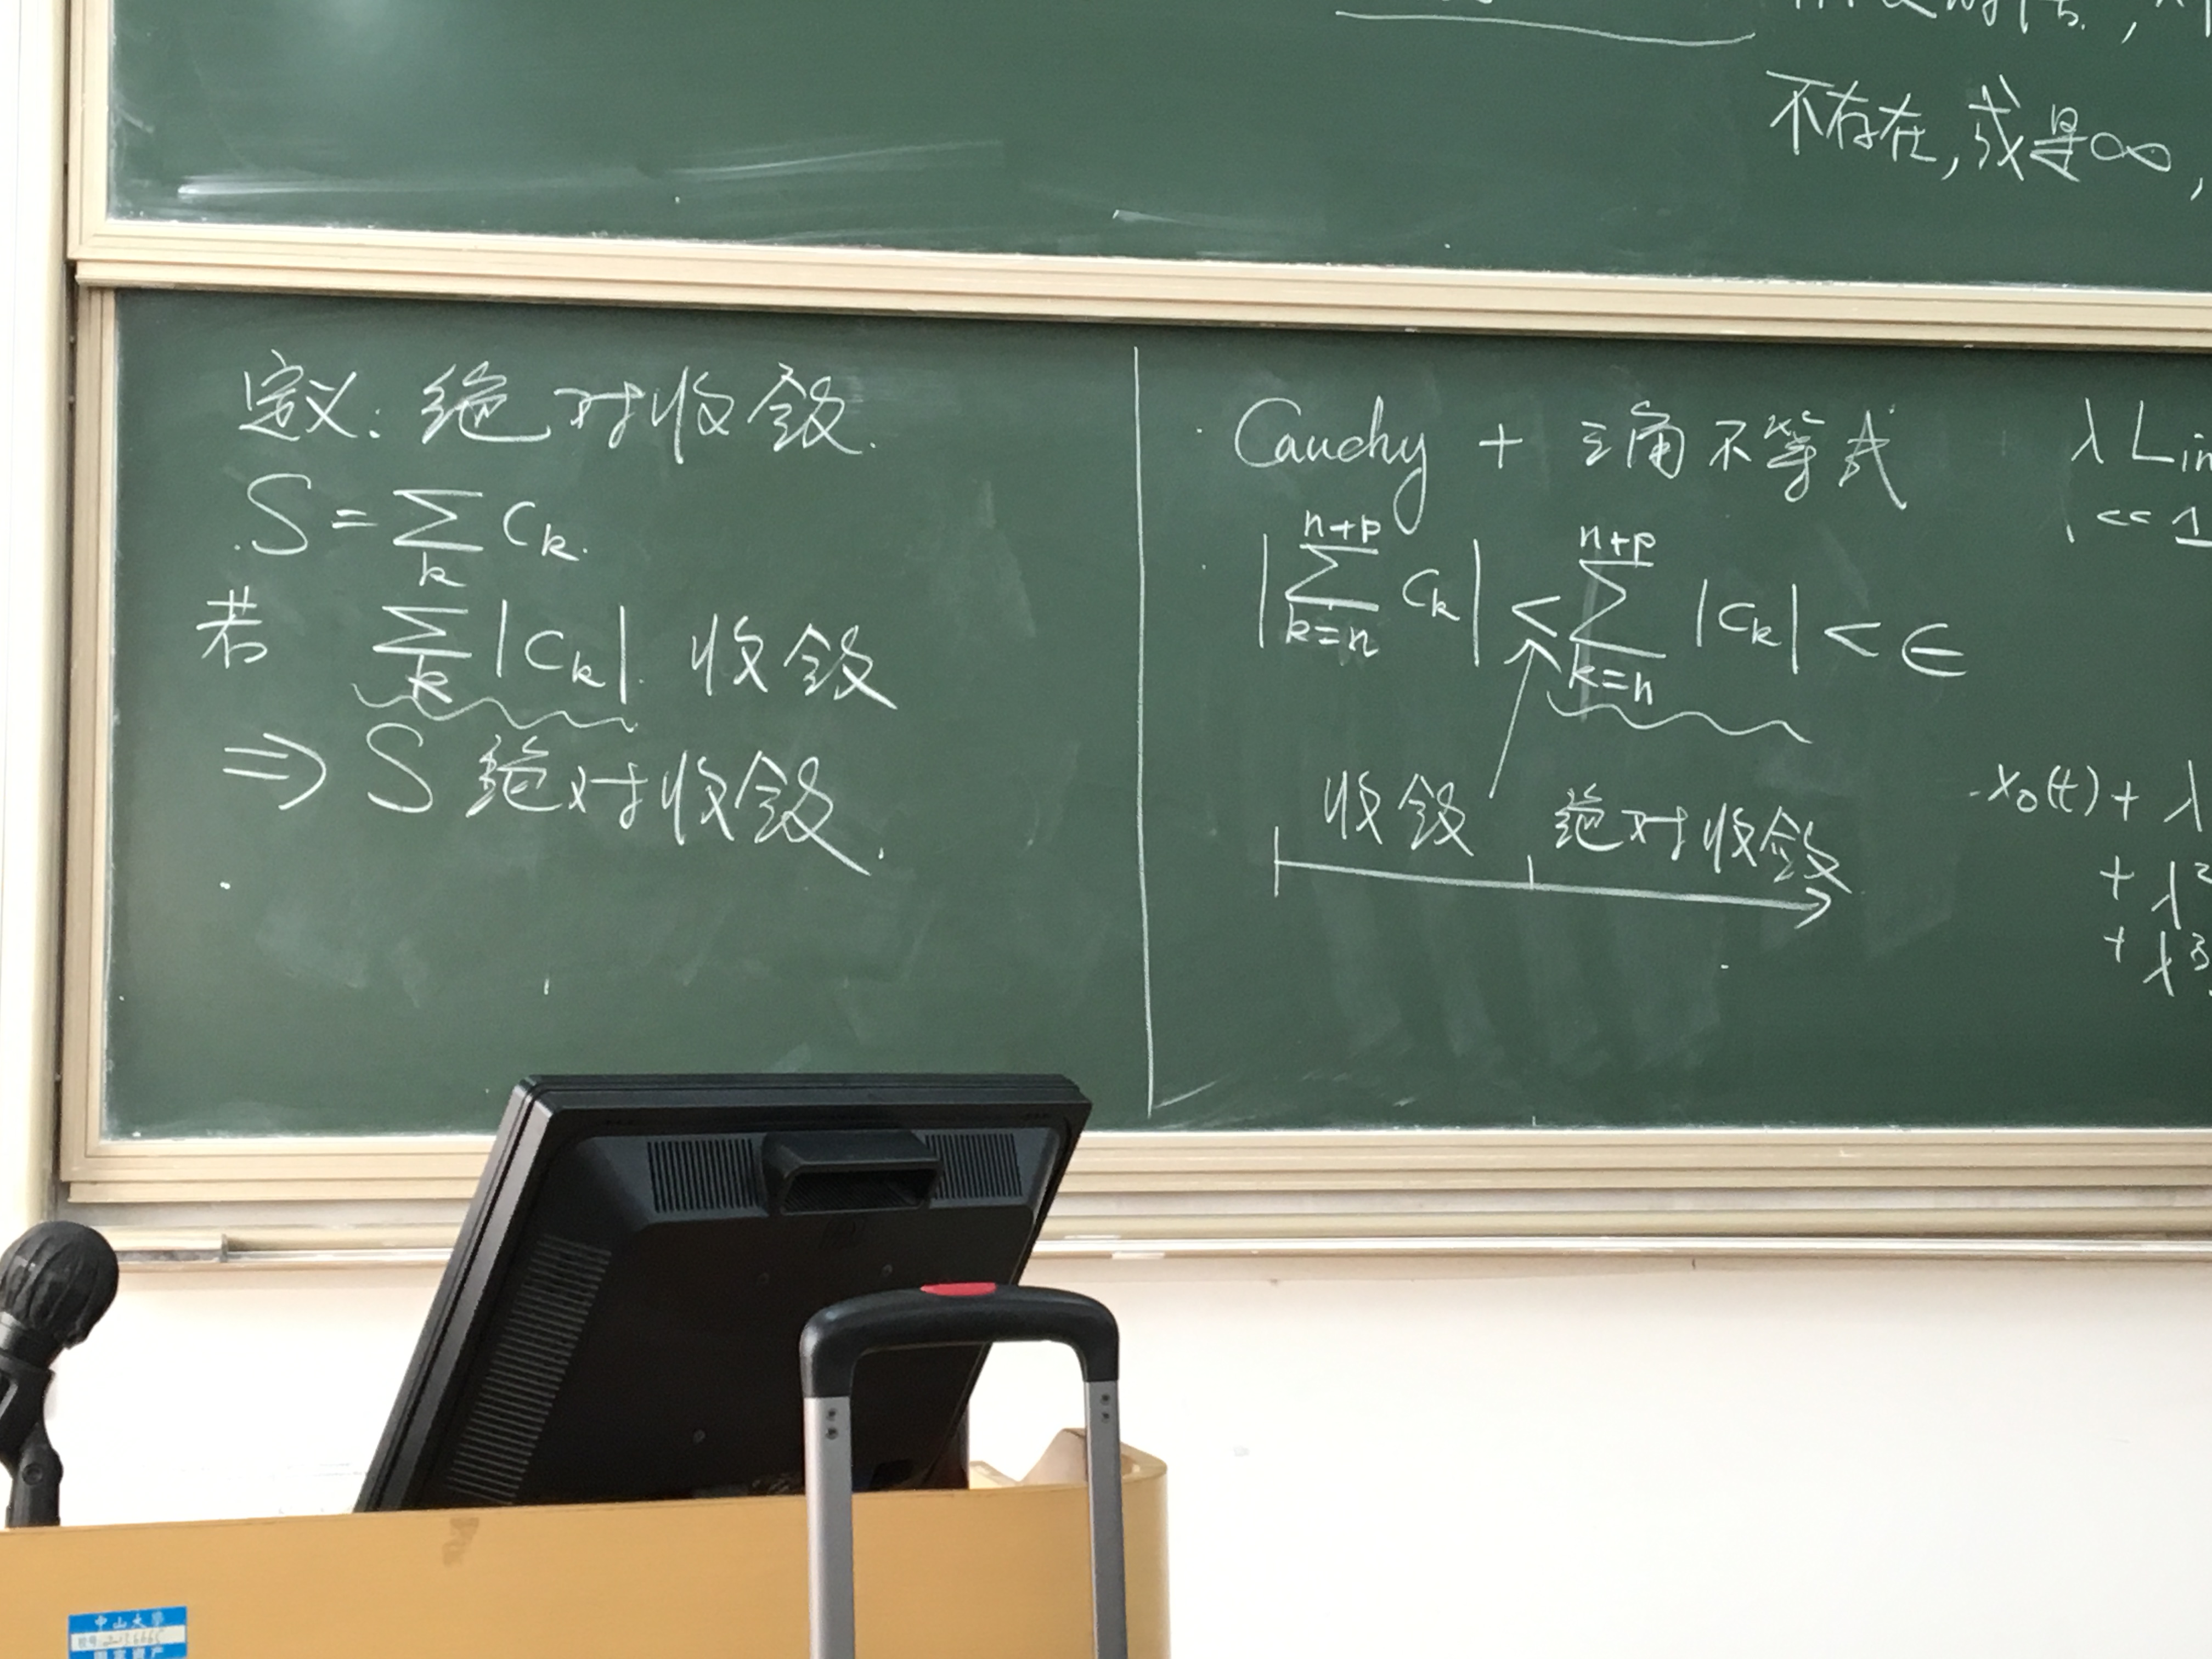 不存在,或是∞,
定义:绝对收敛.
S=∑_k c_k.
若 ∑_k |c_k| 收敛
⇒ S 绝对收敛.
Cauchy + 三角不等式
|∑_{k=n}^{n+p} c_k| < ∑_{k=n}^{n+p} |c_k| < ∈
收敛 绝对收敛
λ Lin
<< 1
x₀(t) + λ
+ λ²
+ λ³
中山大学